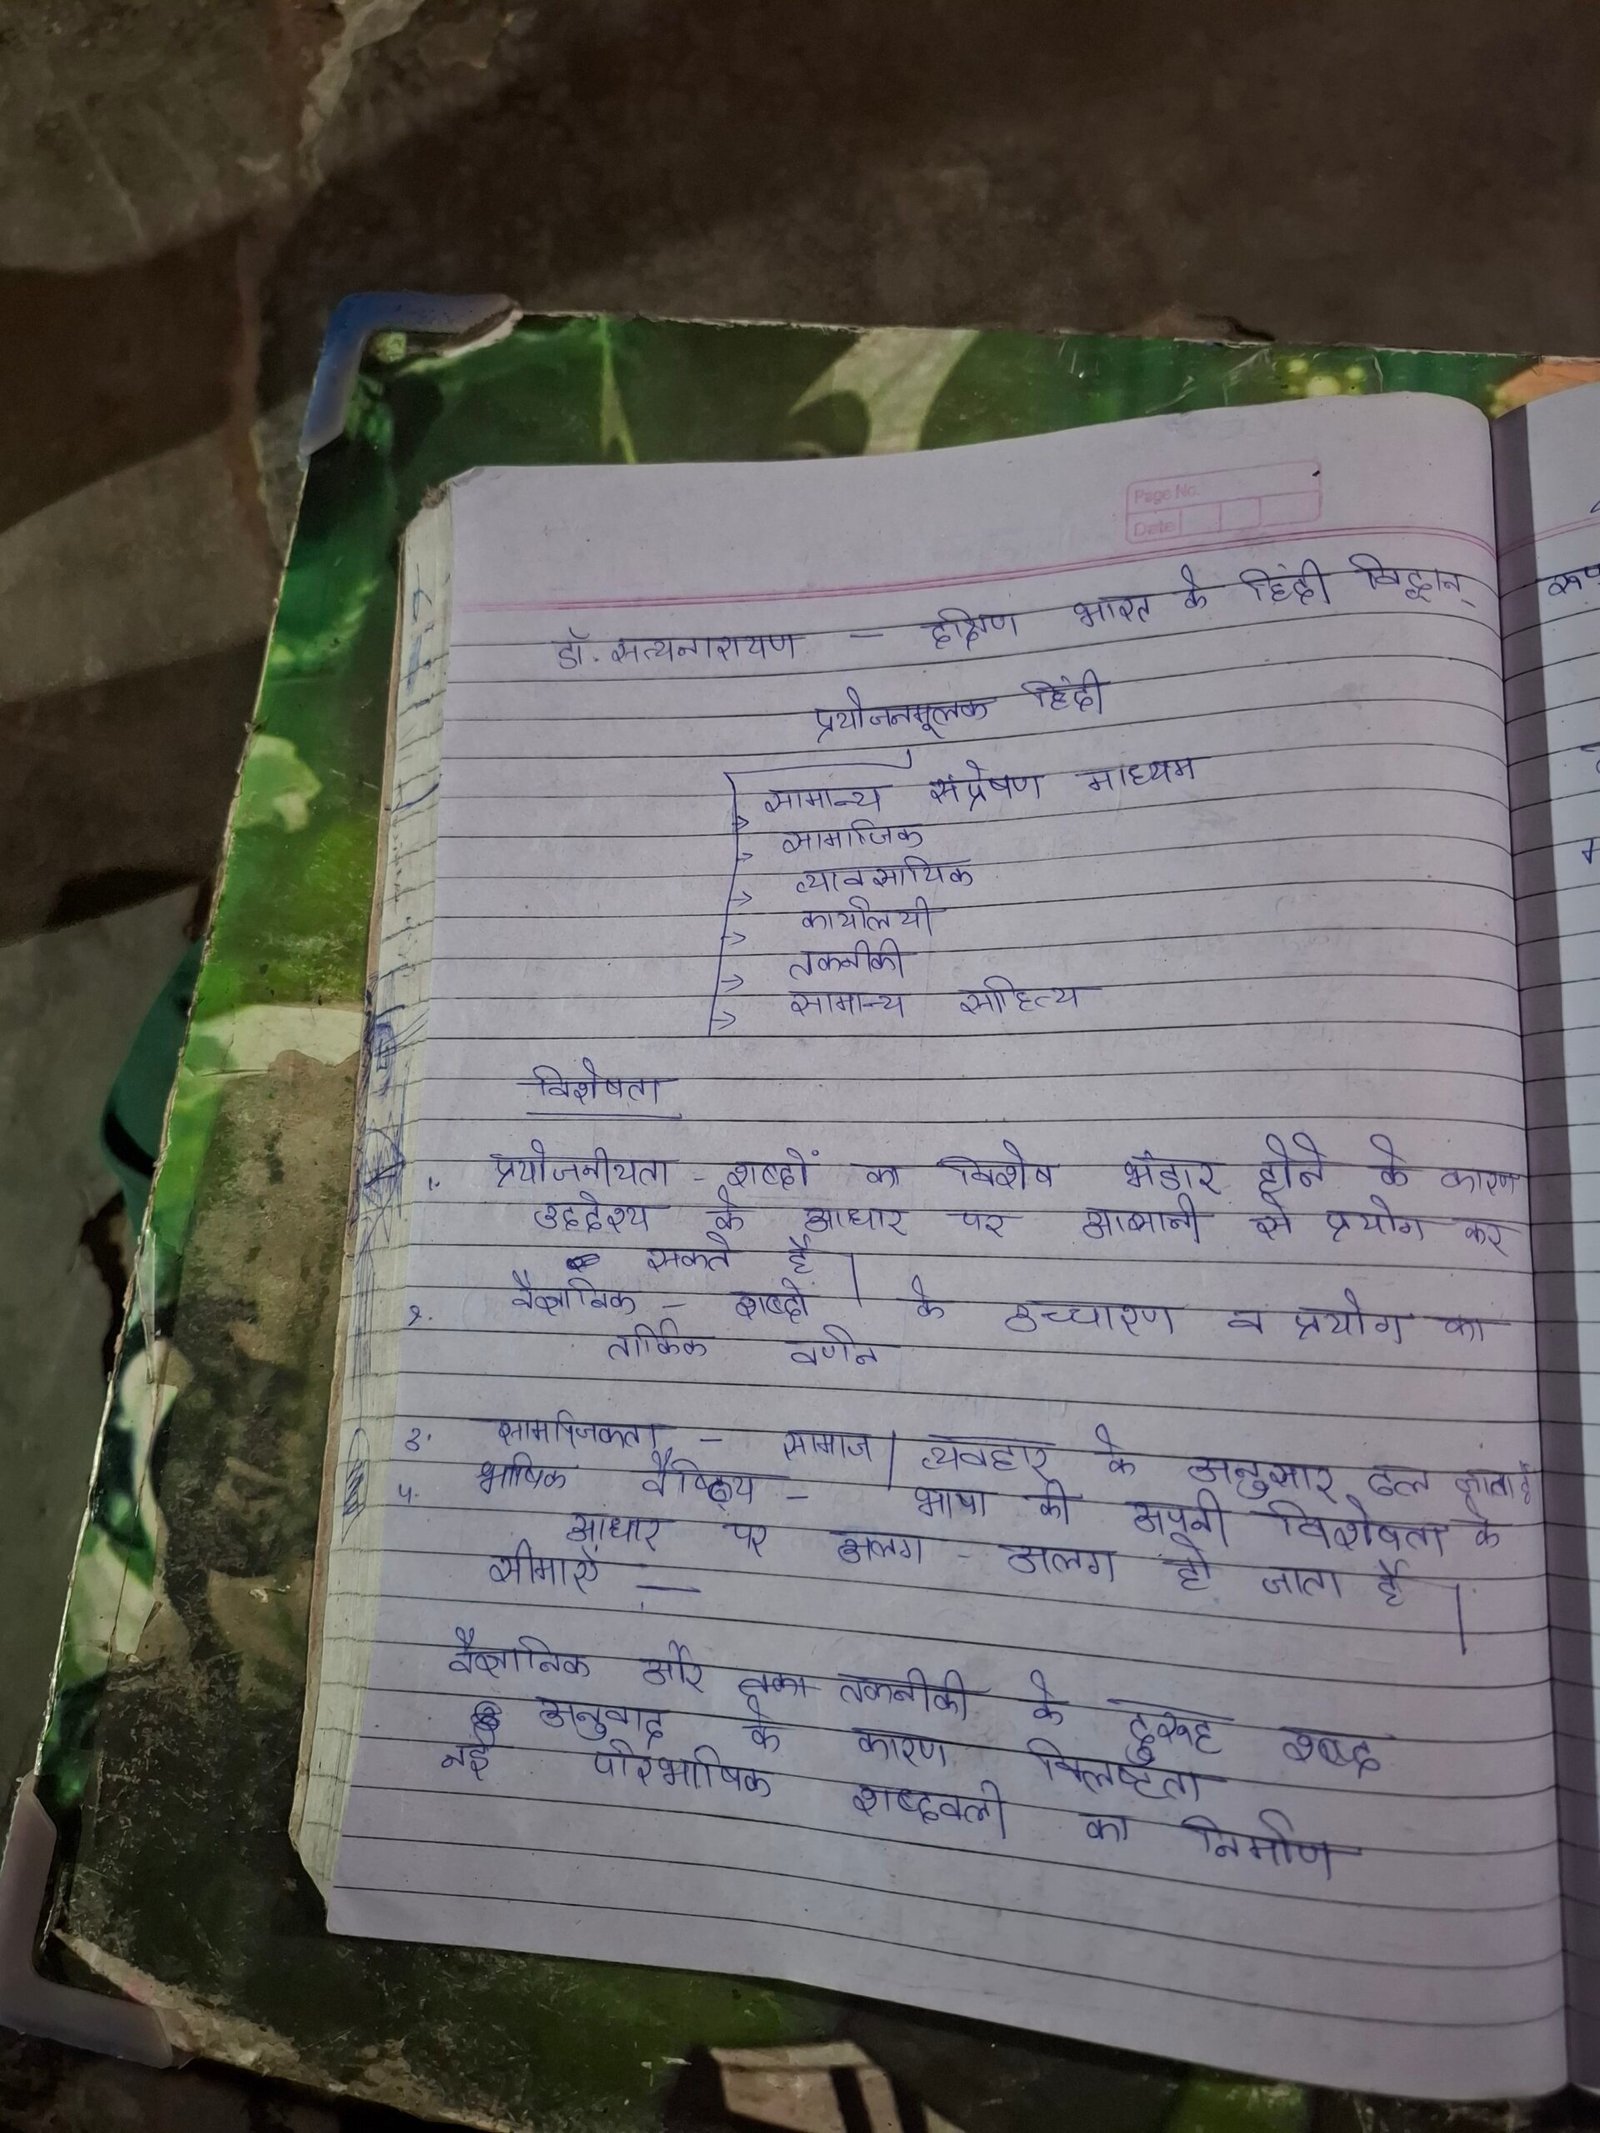 Page No.
Date
डॉ. सत्यनारायण - दक्षिण भारत के हिंदी विद्वान्
प्रयोजनमूलक हिंदी
सामान्य संप्रेषण माध्यम
सामाजिक
व्यावसायिक
कार्यालयी
तकनीकी
सामान्य साहित्य
विशेषता
1. प्रयोजनीयता - शब्दों का विशेष भंडार होने के कारण
उद्देश्य के आधार पर आसानी से प्रयोग कर
सकते हैं।
2. वैज्ञानिक - शब्दों के उच्चारण व प्रयोग का
तार्किक वर्णन
3. सामाजिकता - सामाज / व्यवहार के अनुसार ढल जाता है
4. भाषिक वैष्ट्यि - भाषा की अपनी विशेषता के
आधार पर अलग - अलग हो जाता है।
सीमाएँ :-
वैज्ञानिक और तका तकनीकी के दुरूह शब्द
अनुवाद के कारण क्लिष्टता
नई परिभाषिक शब्दवली का निर्माण